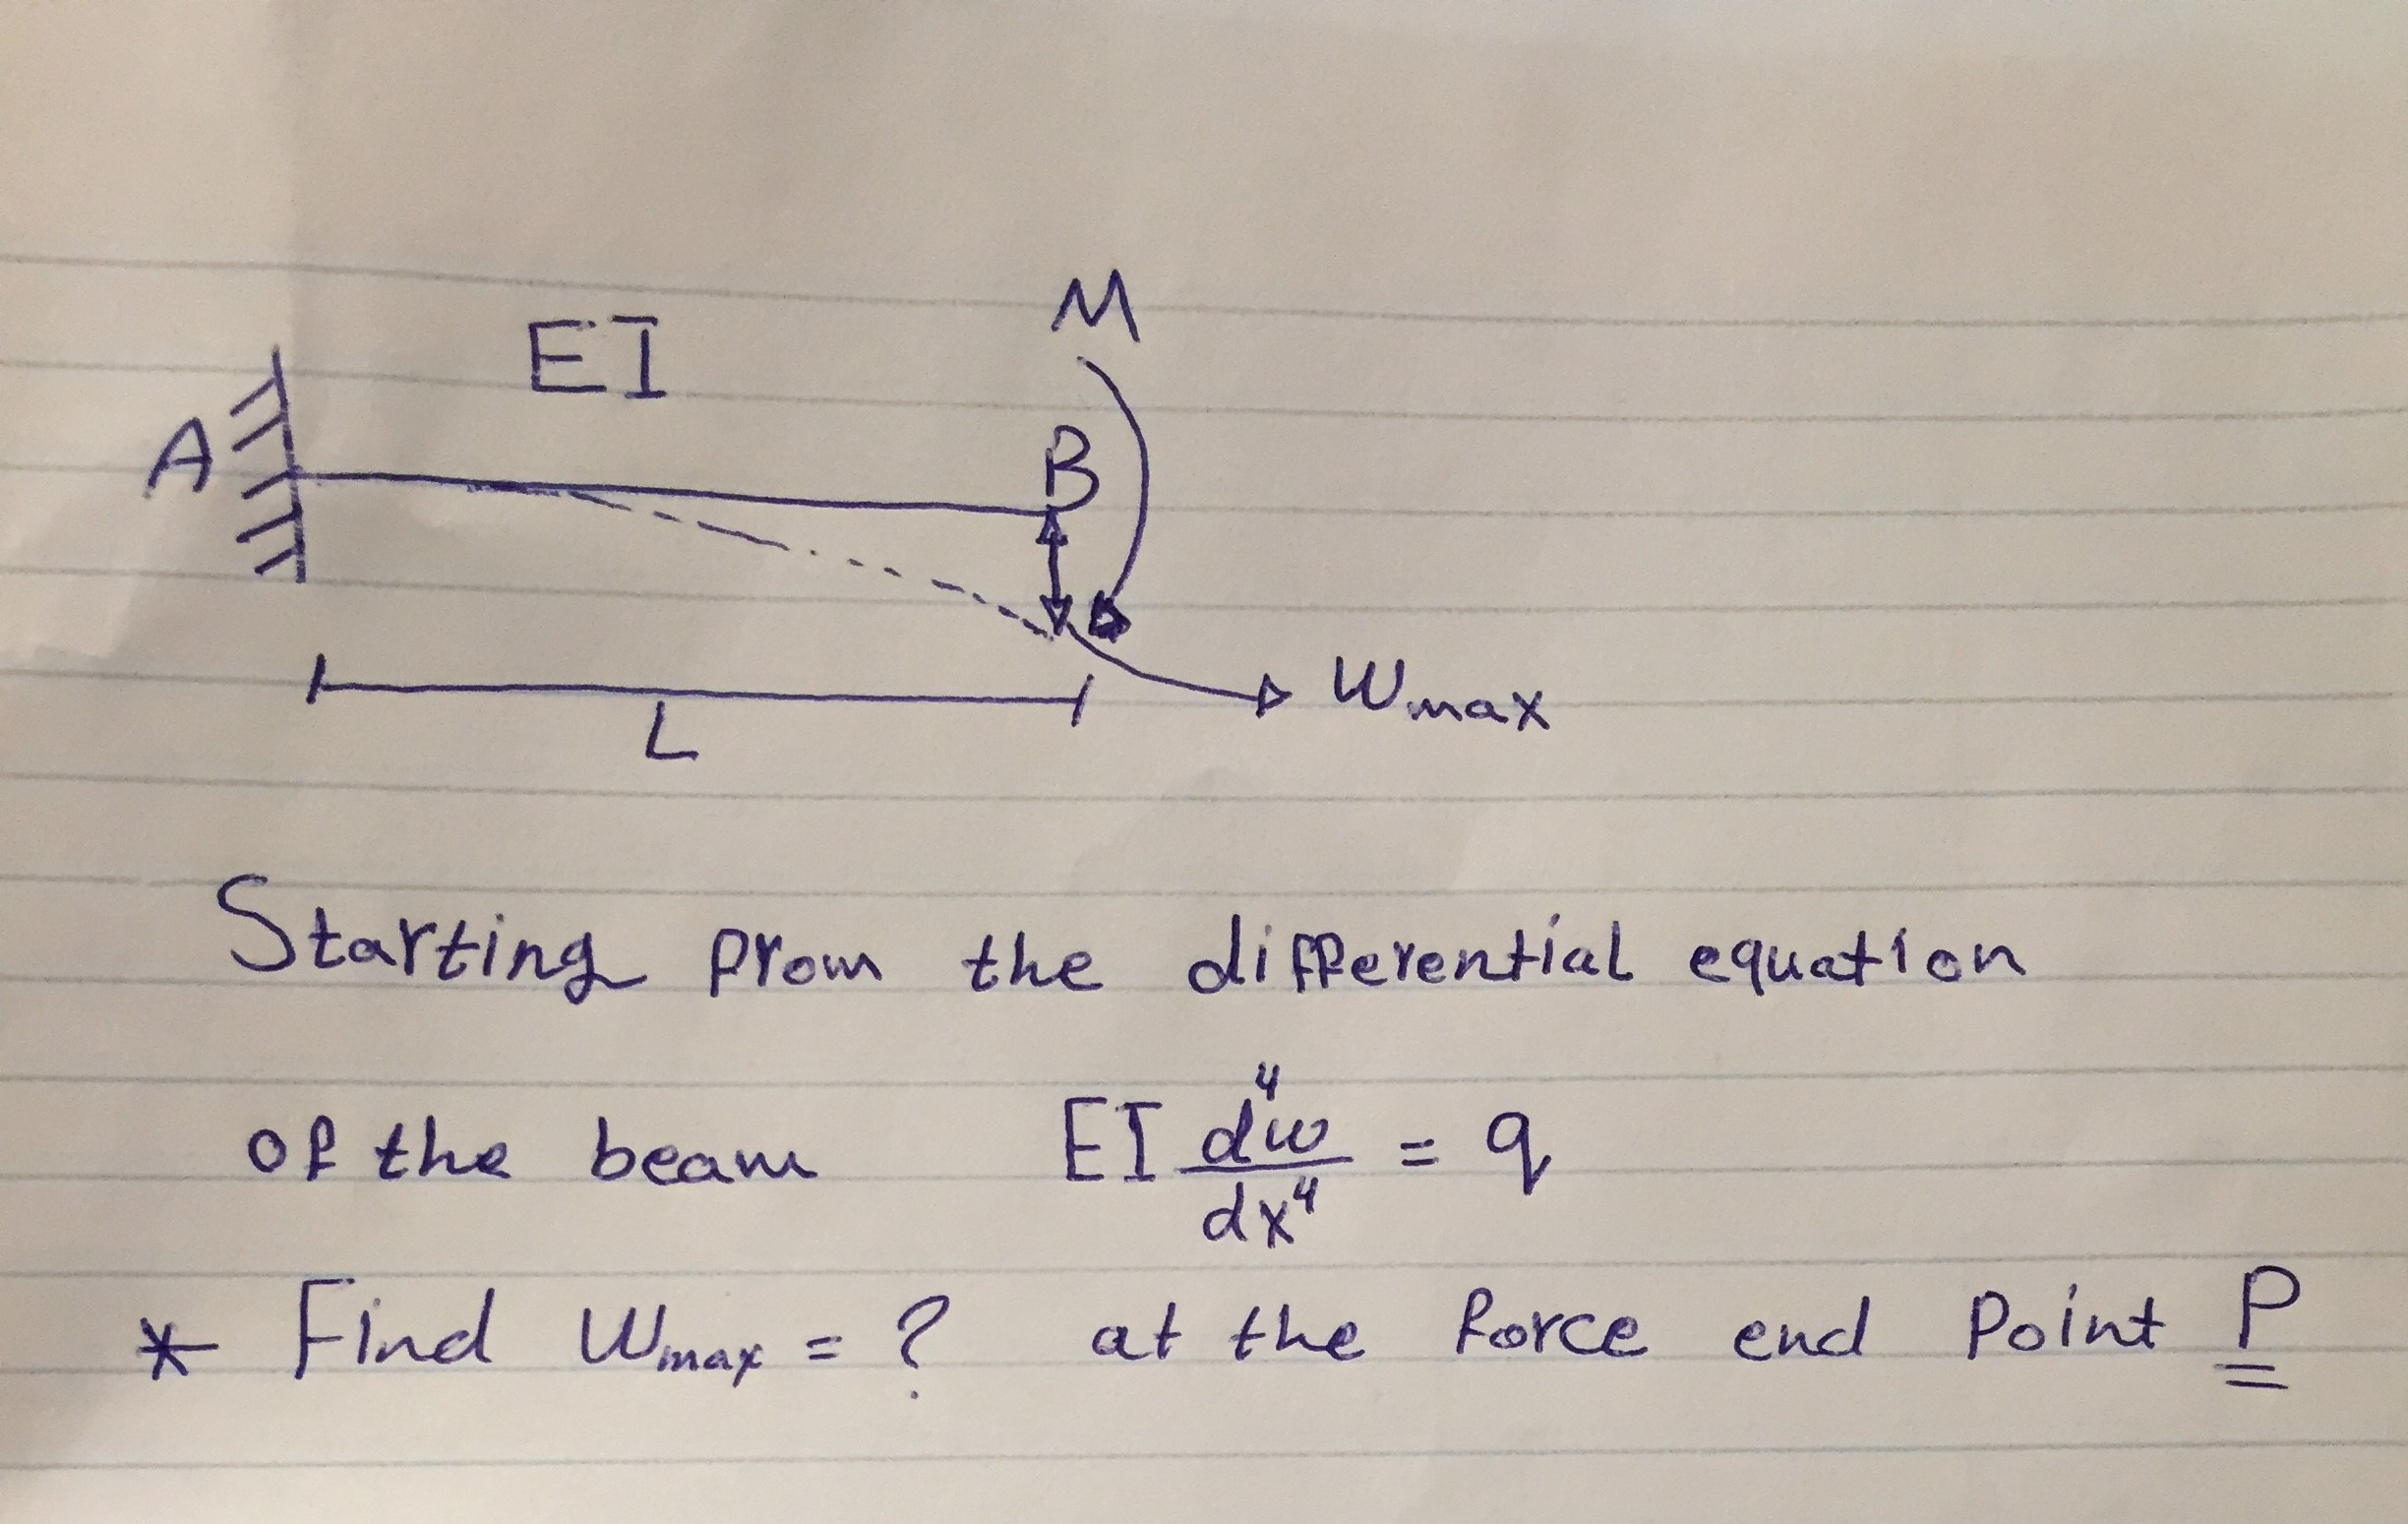 M
EI
A
B
Wmax
L
Starting from the differential equation
of the beam EI d⁴w/dx⁴ = q
* Find Wmax = ? at the force end Point P